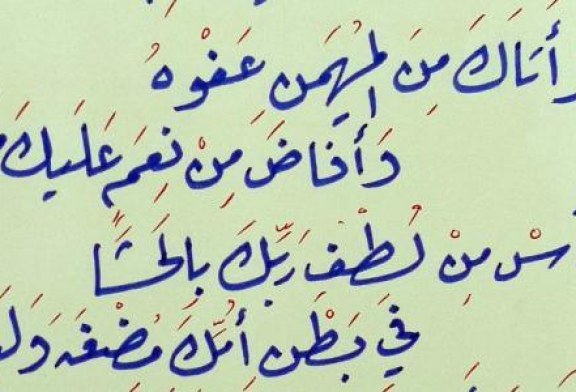 وأَتَاكَ مِنَ المُهَيمن عَفْوهُ
وَأفاضَ مِنْ نِعَمٍ عَلَيكَ
مِنْ لُطْفِ رَبِّكَ بالحَشَا
في بَطْنِ أُمِّكَ مُضْغَةً